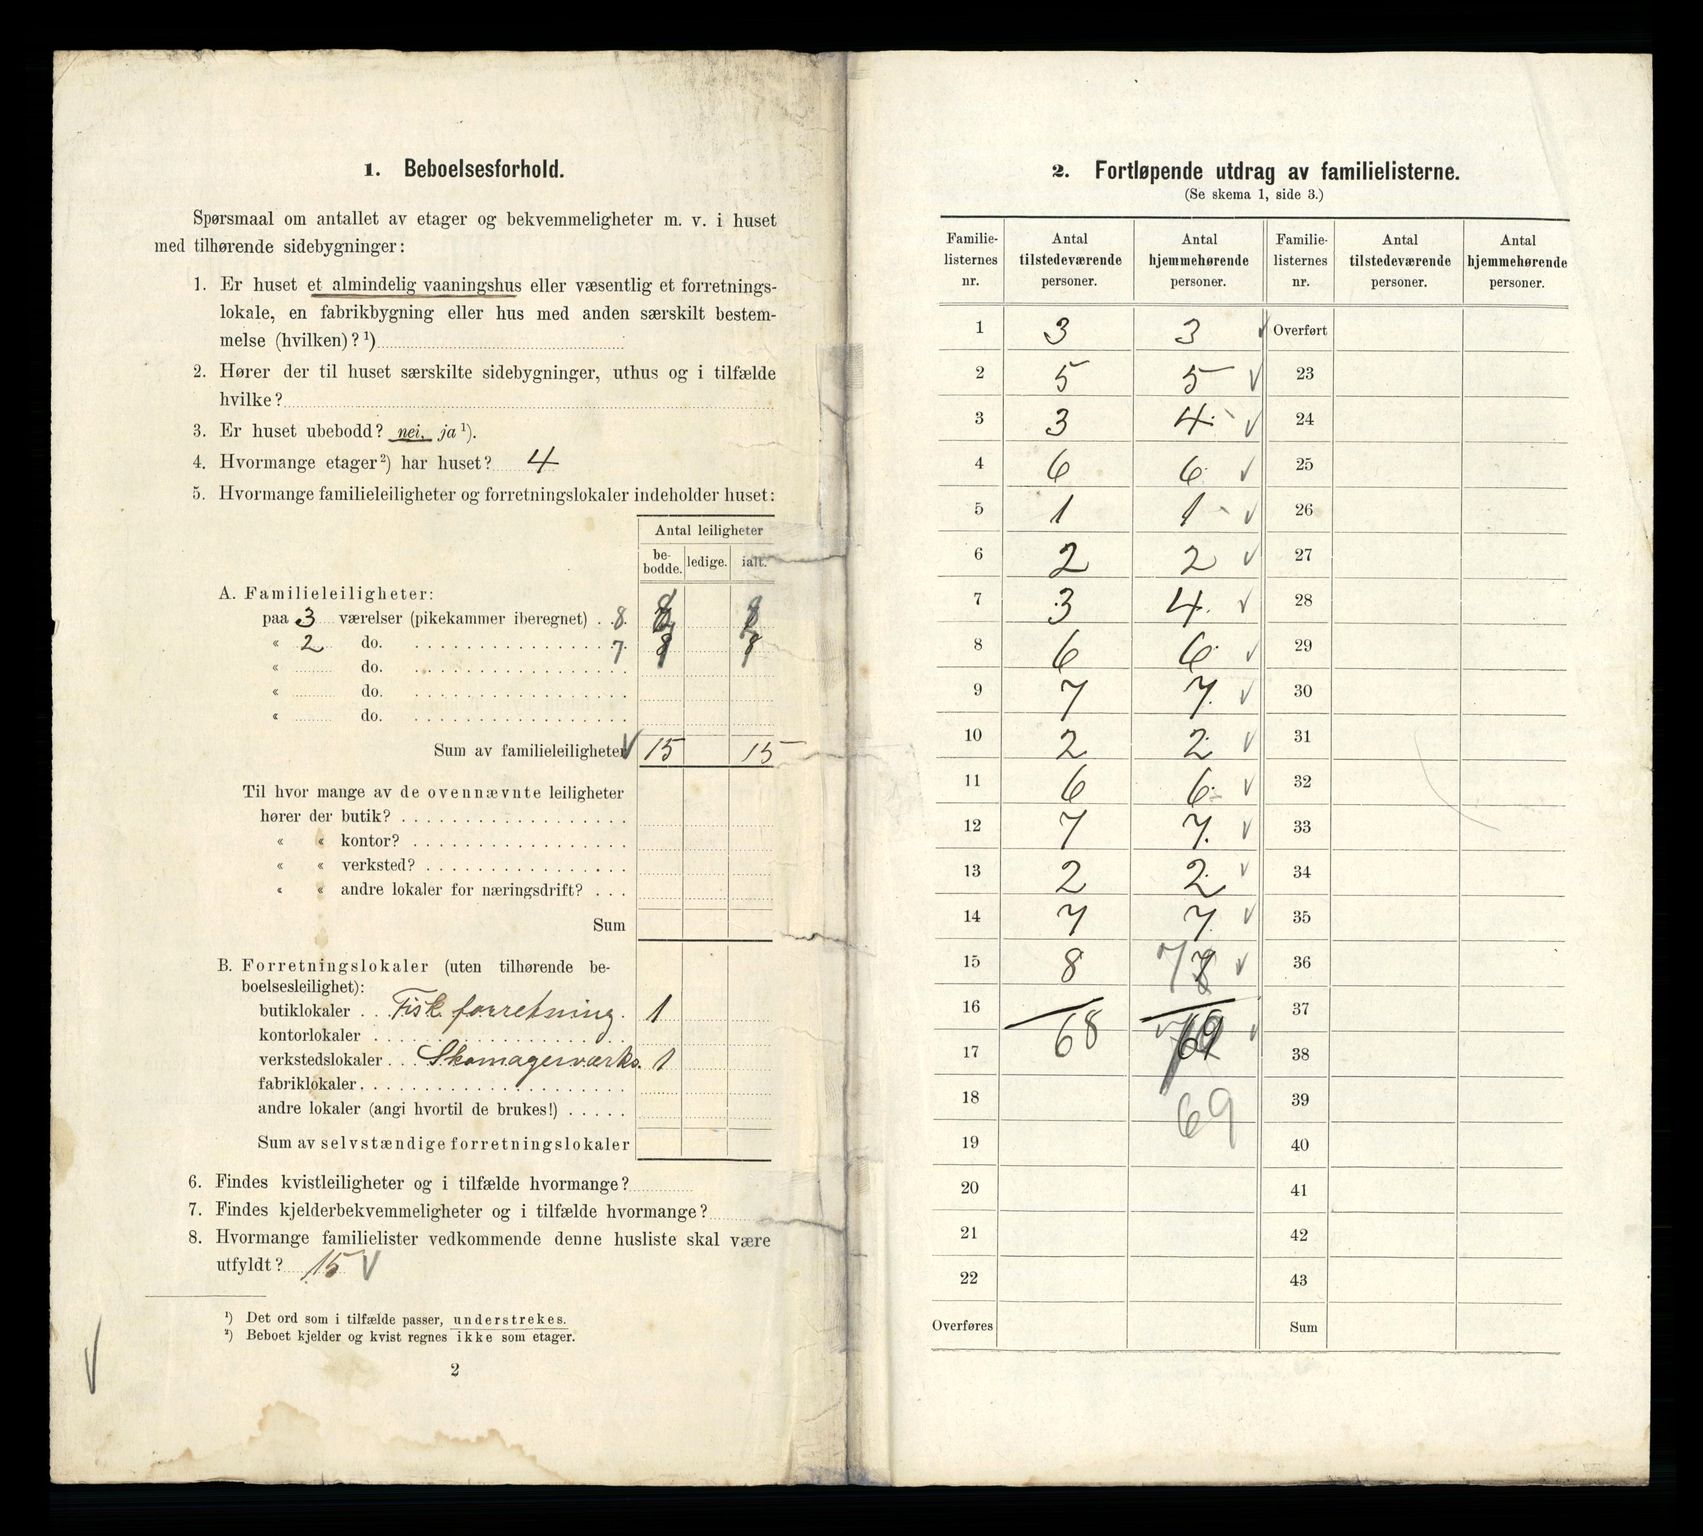 1. Beboelsesforhold.
Spørsmaal om antallet av etager og bekvemmeligheter m. v. i huset
med tilhørende sidebygninger:
1. Er huset et almindelig vaaningshus eller væsentlig et forretnings-
lokale, en fabrikbygning eller hus med anden særskilt bestem-
melse (hvilken)? ¹)
2. Hører der til huset særskilte sidebygninger, uthus og i tilfælde
hvilke?
3. Er huset ubebodd? nei, ja ¹).
4. Hvormange etager ²) har huset? 4
5. Hvormange familieleiligheter og forretningslokaler indeholder huset:
Antal leiligheter
be-bodde. ledige. ialt.
A. Familieleiligheter:
paa 3 værelser (pikekammer iberegnet) . . 8
« 2 do. 7
« do.
« do.
« do.
Sum av familieleiligheter √ 15 15
Til hvor mange av de ovennævnte leiligheter
hører der butik?
« « kontor?
« « verksted?
« « andre lokaler for næringsdrift?
Sum
B. Forretningslokaler (uten tilhørende be-
boelsesleilighet):
butiklokaler . . Fisk. forretning. 1
kontorlokaler
verkstedslokaler . . Skomagerværks. 1
fabriklokaler
andre lokaler (angi hvortil de brukes!)
Sum av selvstændige forretningslokaler
6. Findes kvistleiligheter og i tilfælde hvormange?
7. Findes kjelderbekvemmeligheter og i tilfælde hvormange?
8. Hvormange familielister vedkommende denne husliste skal være
utfyldt? 15 √
¹) Det ord som i tilfælde passer, understrekes.
²) Beboet kjelder og kvist regnes ikke som etager.
2
√
2. Fortløpende utdrag av familielisterne.
(Se skema 1, side 3.)
Familie-listernes nr. Antal tilstedeværende personer. Antal hjemmehørende personer. Familie-listernes nr. Antal tilstedeværende personer. Antal hjemmehørende personer.
1 3 3 √ Overført
2 5 5 √ 23
3 3 4 √ 24
4 6 6 √ 25
5 1 1 √ 26
6 2 2 √ 27
7 3 4 √ 28
8 6 6 √ 29
9 7 7 √ 30
10 2 2 √ 31
11 6 6 √ 32
12 7 7 √ 33
13 2 2 √ 34
14 7 7 √ 35
15 8 7 √ 36
16 37
17 68 √ 38
18 69 39
19 40
20 41
21 42
22 43
Overføres Sum